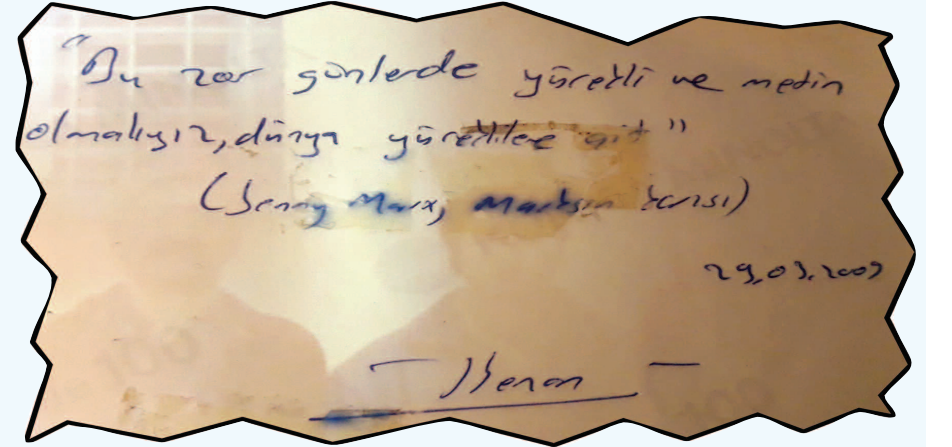 "Bu zor günlerde yürekli ve metin
olmalıyız, dünya yüreklilere ait"
(Jenny Marx, Marksın karısı)
29.03.2009